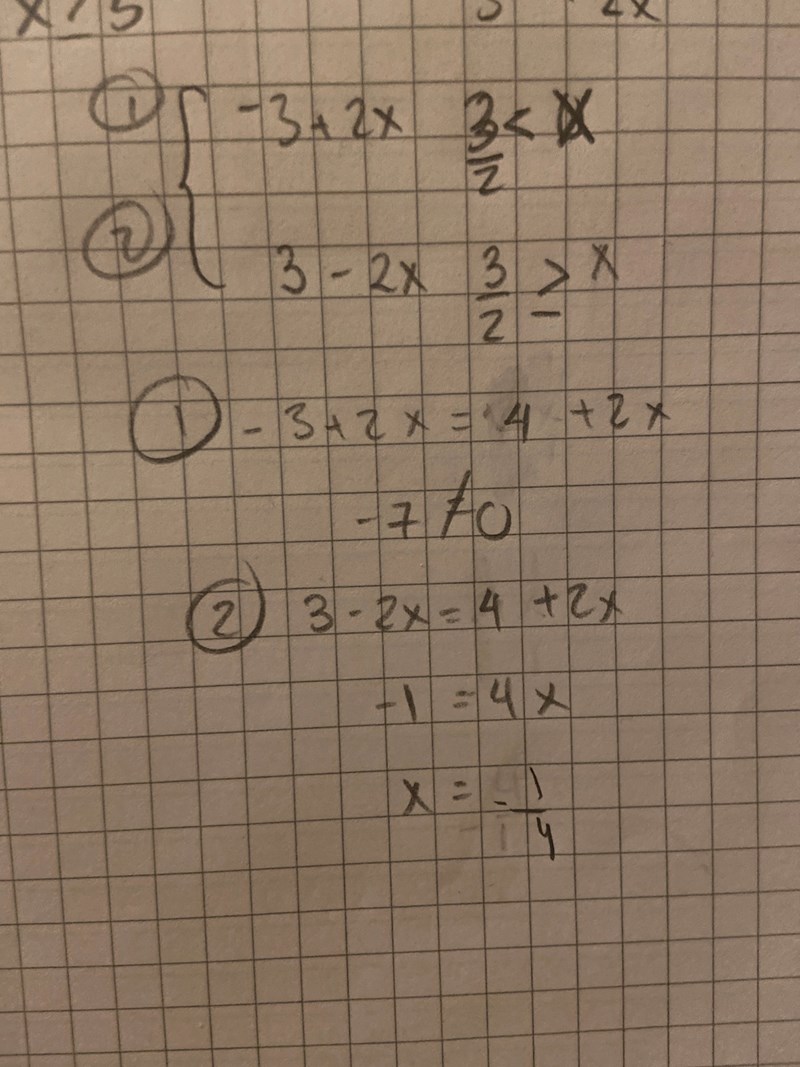 x ≥ 5
① -3+2x 3/2 < x
② 3-2x 3/2 ≥ x
① -3+2x = 4 +2x
-7 ≠ 0
② 3-2x = 4 +2x
-1 = 4x
x = -1/4